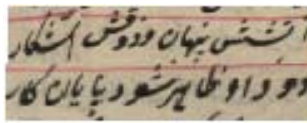 آتشش پنهان و ذوقش آشکار
دود او ظاهر شود پایان کار